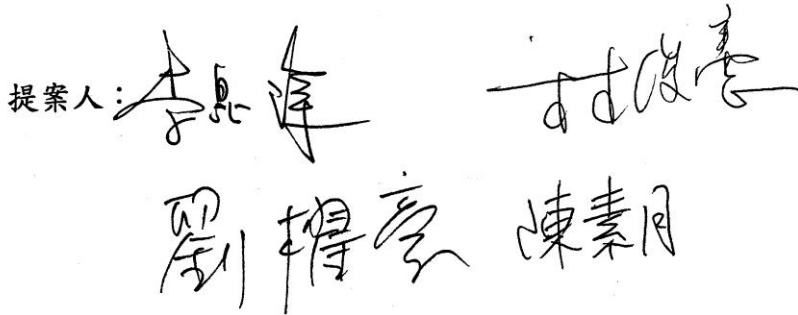 提案人：李昆澤 林俊憲
劉櫂豪 陳素月